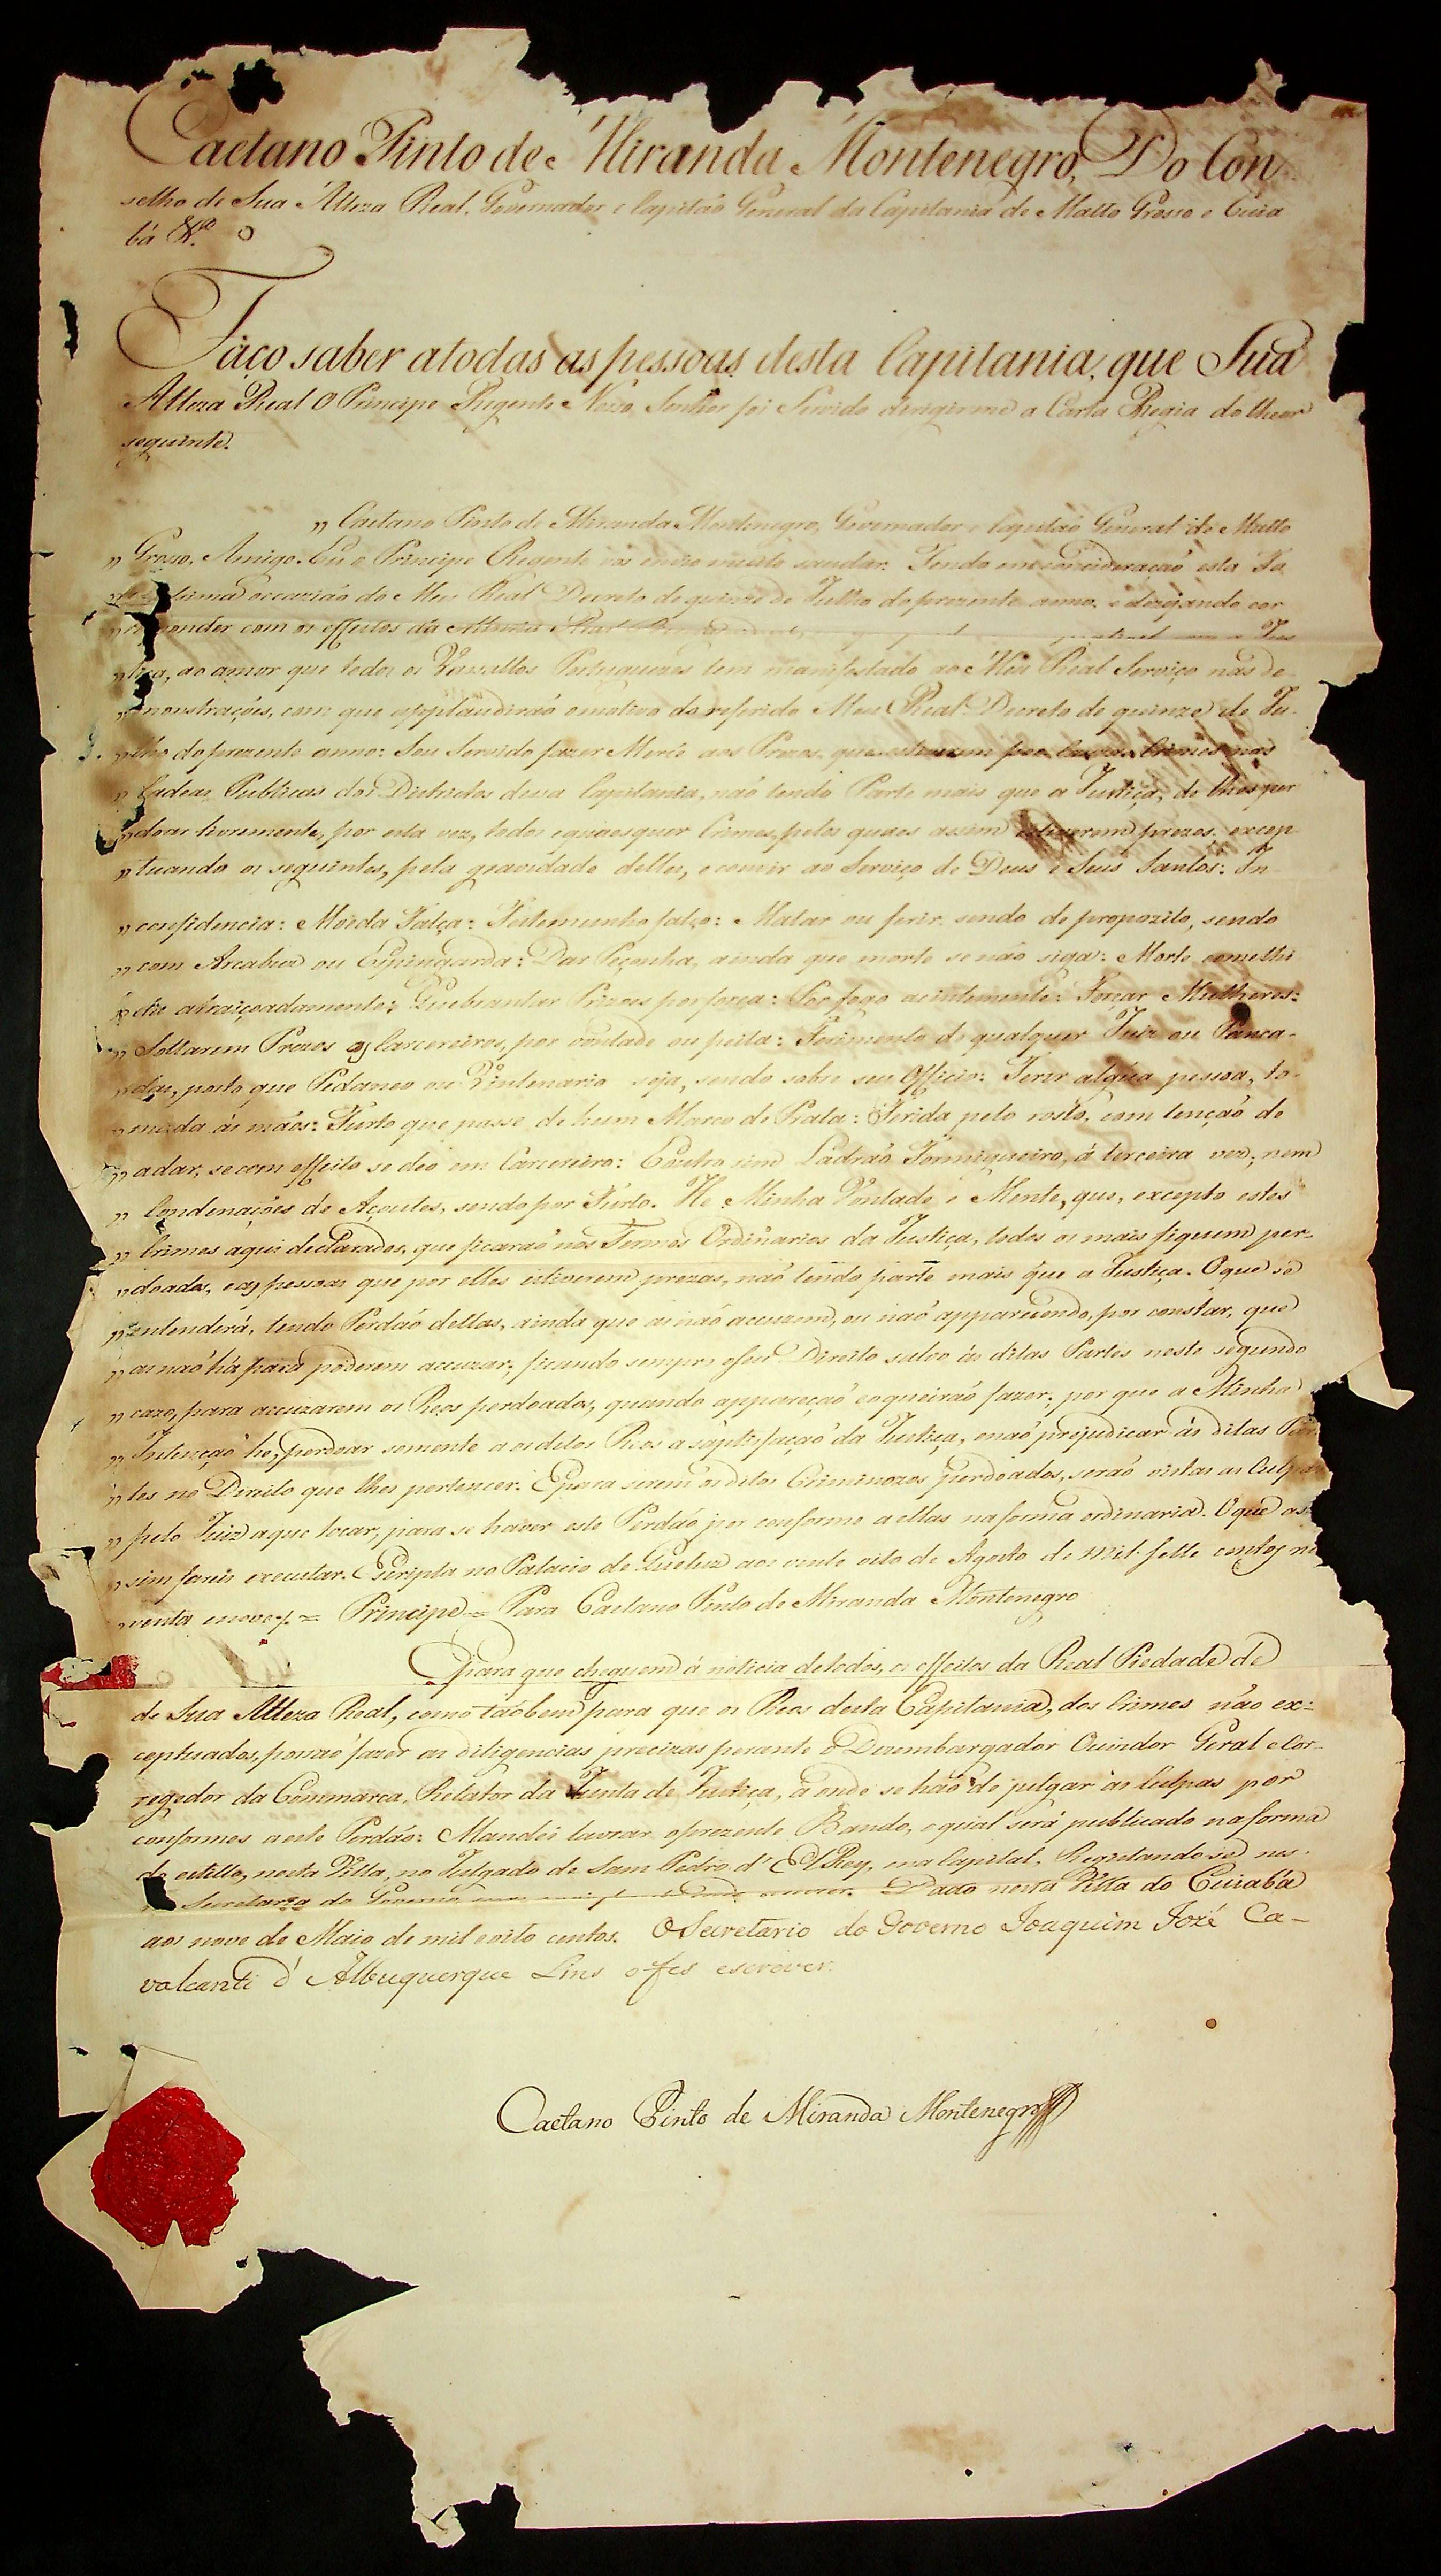 Caetano Pinto de Miranda Montenegro, Do Con
selho de Sua Alteza Real, Governador e Capitaõ General da Capitania de Matto Grosso e Cuia
bá &ª
Faço saber atodas as pessoas desta Capitania, que Sua
Alteza Real O Principe Regente Nosso Senhor foi Servido dirigirme a Carta Regia do theor
seguinte.
„ Caetano Pinto de Miranda Montenegro, Governador e Capitaõ General de Matto
„ Grosso. Amigo. Eu o Principe Regente vos envio muito saudar. Tendo em consideraçaõ esta
occaziaõ do Meu Real Decreto de quinze de Julho do prezente anno, e dezejando cor
ponder com os effeitos da Real
„ tiça, ao amor que todos os Vassallos Portuguezes tem manifestado ao Meu Real Serviço nas de
„ monstrações, com que applaudiraõ o motivo do referido Meu Real Decreto de quinze de Ju-
„ lho do prezente anno: Sou Servido fazer Mercê aos Prezos, que estiverem por Crimes nas
„ Cadeas Publicas dos Districtos dessa Capitania, naõ tendo Parte mais que a Justiça, de lhes per
„ doar livremente, por esta vez, todos e quaesquer Crimes, pelos quaes assim estiverem prezos: excep
„ tuando os seguintes, pela gravidade delles, e convir ao Serviço de Deus e Seus Santos: In
„ confidencia: Moeda Falça: Testemunho falço: Matar ou ferir sendo de propozito, sendo
„ com Arcabuz ou Espingarda: Dar Peçonha, ainda que morte se não siga: Morte comethi
„ da atraiçoadamente: Quebrantar Prizoes por força: Por fogo acintemente: Forçar Mulheres:
„ Soltarem Prezos os Carcereiros, por vontade ou peita: Ferimento de qualquer Juiz ou Panca-
„ das, posto que Pedaneo ou Vintenario seja, sendo sobre seu Officio: Ferir algũa pessoa, to-
„ mada ás mãos: Furto que passe de hum Marco de Prata: Ferida pelo rosto, com tençaõ de
„ a dar, se com effeito se deo em Carcereiro: E outro sim Ladraõ Formigueiro, á terceira vez; nem
„ Condenações de Açoutes, sendo por Furto. He Minha Vontade e Mente, que, excepto estes
„ Crimes aqui declarados, que ficaraõ nos Termos Ordinarios da Justiça, todos os mais fiquem per-
„ doados, e as pessoas que por elles estiverem prezas, naõ tendo parte mais que a Justiça. O que se
„ entenderá, tendo Perdaõ dellas, ainda que as naõ accuzem, ou naõ apparecendo, por constar, que
„ as naõ há para poderem accuzar; ficando sempre o seu Direito salvo ás ditas Partes neste segundo
„ cazo, para accuzarem os Reos perdoados, quando appareçaõ e o queiraõ fazer; por que a Minha
„ Intençaõ he, perdoar somente aos ditos Reos a satisfaçaõ da Justiça, e naõ prejudicar ás ditas Par
„ tes no Direito que lhes pertencer. E para serem os ditos Criminozos perdoados, seraõ vistas as Culpas
„ pelo Juiz a que tocar, para se haver este Perdaõ por conforme a ellas na forma ordinaria. O que as
„ sim fareis executar. Escripta no Palacio de Queluz aos vinte oito de Agosto de mil sette centos no
„ venta e nove = Principe = Para Caetano Pinto de Miranda Montenegro
E para que cheguem á noticia de todos, os effeitos da Real Piedade de
de Sua Alteza Real, como taõbem para que os Reos desta Capitania, dos Crimes não ex-
ceptuados, possaõ fazer as diligencias precizas perante o Dezembargador Ouvidor Geral e Cor-
regedor da Commarca, Relator da Junta de Justiça, a onde se haõ de julgar as Culpas por
conformes a este Perdão: Mandei lavrar o prezente Bando, o qual será publicado na forma
do estillo, nesta Villa, no Julgado de Sam Pedro d'ElRey, e na Capital, Registandose nes-
Secretaria do Governo Dado nesta Villa do Cuiabá
aos nove de Maio de mil e oito centos. O Secretario do Governo Joaquim Jozé Ca-
valcanti d'Albuquerque Lins o fes escrever
Caetano Pinto de Miranda Montenegro